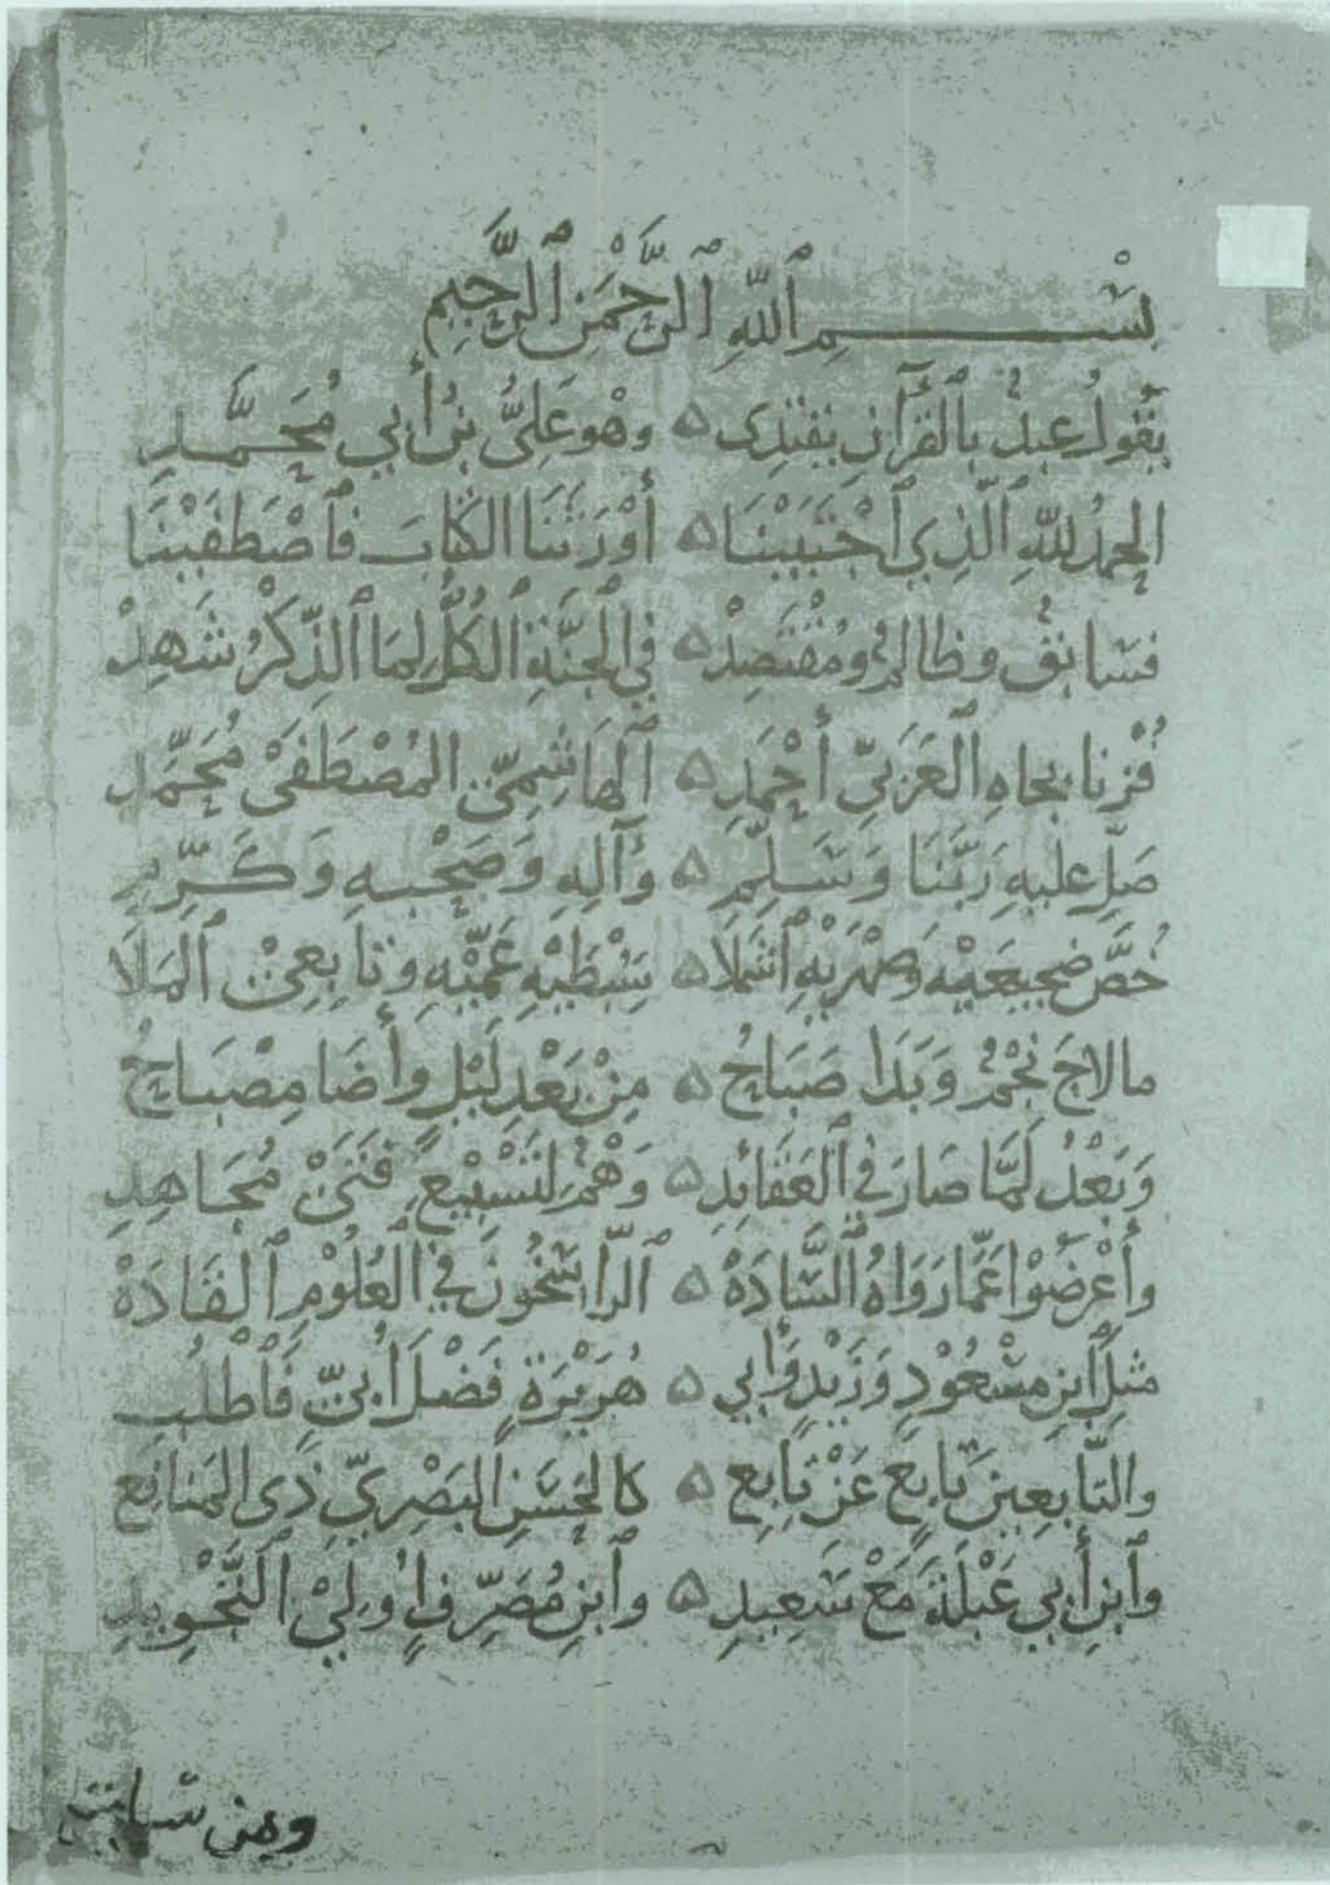 بِسْمِ ٱللَّهِ ٱلرَّحْمَنِ ٱلرَّحِيمِ
يَقُولُ عبدٌ بٱلْقُرَآنِ يَقْتَدِى ۵ وهْو عَلِىُّ بنُ أَبي مُحَمَّدِ
الحمدُ للهِ ٱلَّذِي ٱجْتَبَيْنَا ۵ أَوْرَثَنَا الكِتَابَ فَٱصْطَفَيْنَا
فسَابقٌ وظالمٌ ومُقْتَصِدْ ۵ في ٱلجَنَّةِ ٱلكُلُّ لِمَا ٱلذِّكْرُ شَهِدْ
فُزْنا بجاهِ ٱلعَرَبيِّ أَحْمَدِ ۵ ٱلهَاشِمِيِّ المُصْطَفَىْ مُحَمَّدِ
صَلِّ عليهِ رَبَّنَا وَسَلِّمِ ۵ وَآلِهِ وَصَحْبِهِ وَكَرِّمِ
خُصَّ ضجيعَيْهِ وَصِهْرَيْهِ ٱشْمَلَا ۵ سِبْطَيْهِ عَمَّيْهِ وتابِعِيْ ٱلمَلَا
مالاحَ نَجْمٌ وَبَدَا صَبَاحُ ۵ مِنْ بَعْدِ لَيْلٍ وأَضَا مِصْبَاحُ
وَبَعْدُ لَمَّا صَارَ في ٱلعَقَائِدِ ۵ وَهْمٌ لتَسْبِيْعِ فَتَىْ مُجَاهِدِ
وأَعْرَضُوْا عَمَّا رَوَاهُ ٱلسَّادَهْ ۵ ٱلرَّاسِخُونَ في ٱلعُلُوْمِ ٱلقَادَهْ
مثلِ ٱبنِ مَسْعُوْدٍ وَزَيْدٍ وَأَبي ۵ هُرَيْرَةٍ فَضْلَ أُبَيٍّ فَٱطْلُبِ
والتَّابِعِينَ تَابِعٍ عَنْ تَابِعِ ۵ كالحَسَنِ ٱلبَصْرِيِّ ذى المَنافِعِ
وٱبنِ أَبي عَبْلَةَ مَعْ سَعِيدِ ۵ وٱبنِ مُصَرِّفٍ أُولِيْ ٱلتَّجْوِيدِ
ومن سابق